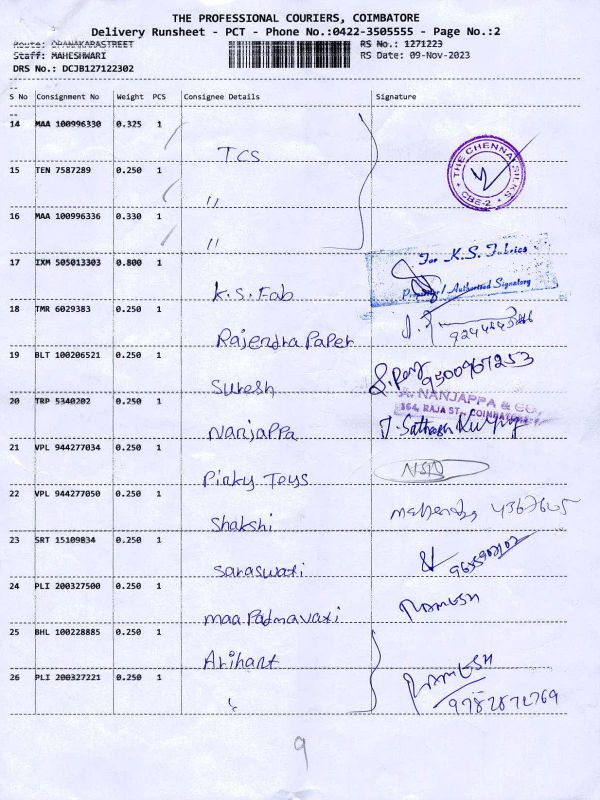 THE PROFESSIONAL COURIERS, COIMBATORE
Delivery Runsheet - PCT - Phone No.:0422-3505555 - Page No.:2
Route: OPANAKARASTREET
RS No.: 1271223
Staff: MAHESHWARI
RS Date: 09-Nov-2023
DRS No.: DCJB127122302
S No Consignment No Weight PCS Consignee Details Signature
14 MAA 100996330 0.325 1
TCS
THE CHENNAI SILKS
CBE-2
15 TEN 7587289 0.250 1
"
16 MAA 100996336 0.330 1
"
17 IXM 505013303 0.800 1
K.S. Fab
For K.S. Fabrics
Authorised Signatory
18 TMR 6029383 0.250 1
Rajendra Paper
19 BLT 100206521 0.250 1
Suresh
9500967253
20 TRP 5340202 0.250 1
Nanjappa
A. NANJAPPA & CO.,
364, RAJA ST., COIMBATORE
21 VPL 944277034 0.250 1
Pinky Toys
22 VPL 944277050 0.250 1
Shakshi
23 SRT 15109834 0.250 1
Saraswati
24 PLI 200327500 0.250 1
maa Padmavati
RAMESH
25 BHL 100228885 0.250 1
Arihant
26 PLI 200327221 0.250 1
"
RAMESH
9